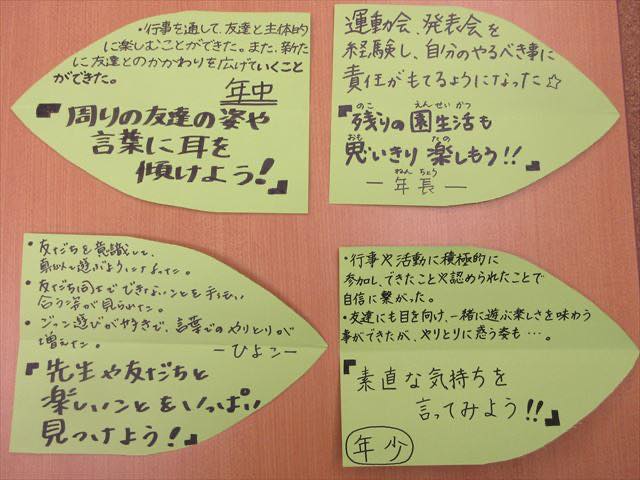 ・行事を通して、友達と主体的
に楽しむことができた。また、新た
に友達とのかかわりを広げていくこと
ができた。
年中
『周りの友達の姿や
言葉に耳を
傾けよう!』
運動会、発表会を
経験し、自分のやるべき事に
責任がもてるようになった☆
のこ えんせいかつ
『残りの園生活も
おも たの
思いきり楽しもう!!』
ねんちょう
―年長―
・友だちを意識して、
真似て遊ぶようになった。
・友だち同士でできないことを手伝い
合う姿が見られた。
・ごっこ遊びが好きで、言葉でのやりとりが
増えた。
―ひよこ―
『先生や友だちと
楽しいことをいっぱい
見つけよう!』
・行事や活動に積極的に
参加し、できたことや認められたことで
自信に繋がった。
・友達にも目を向け、一緒に遊ぶ楽しさを味わう
事ができたが、やりとりに惑う姿も…。
『素直な気持ちを
言ってみよう!!』
年少